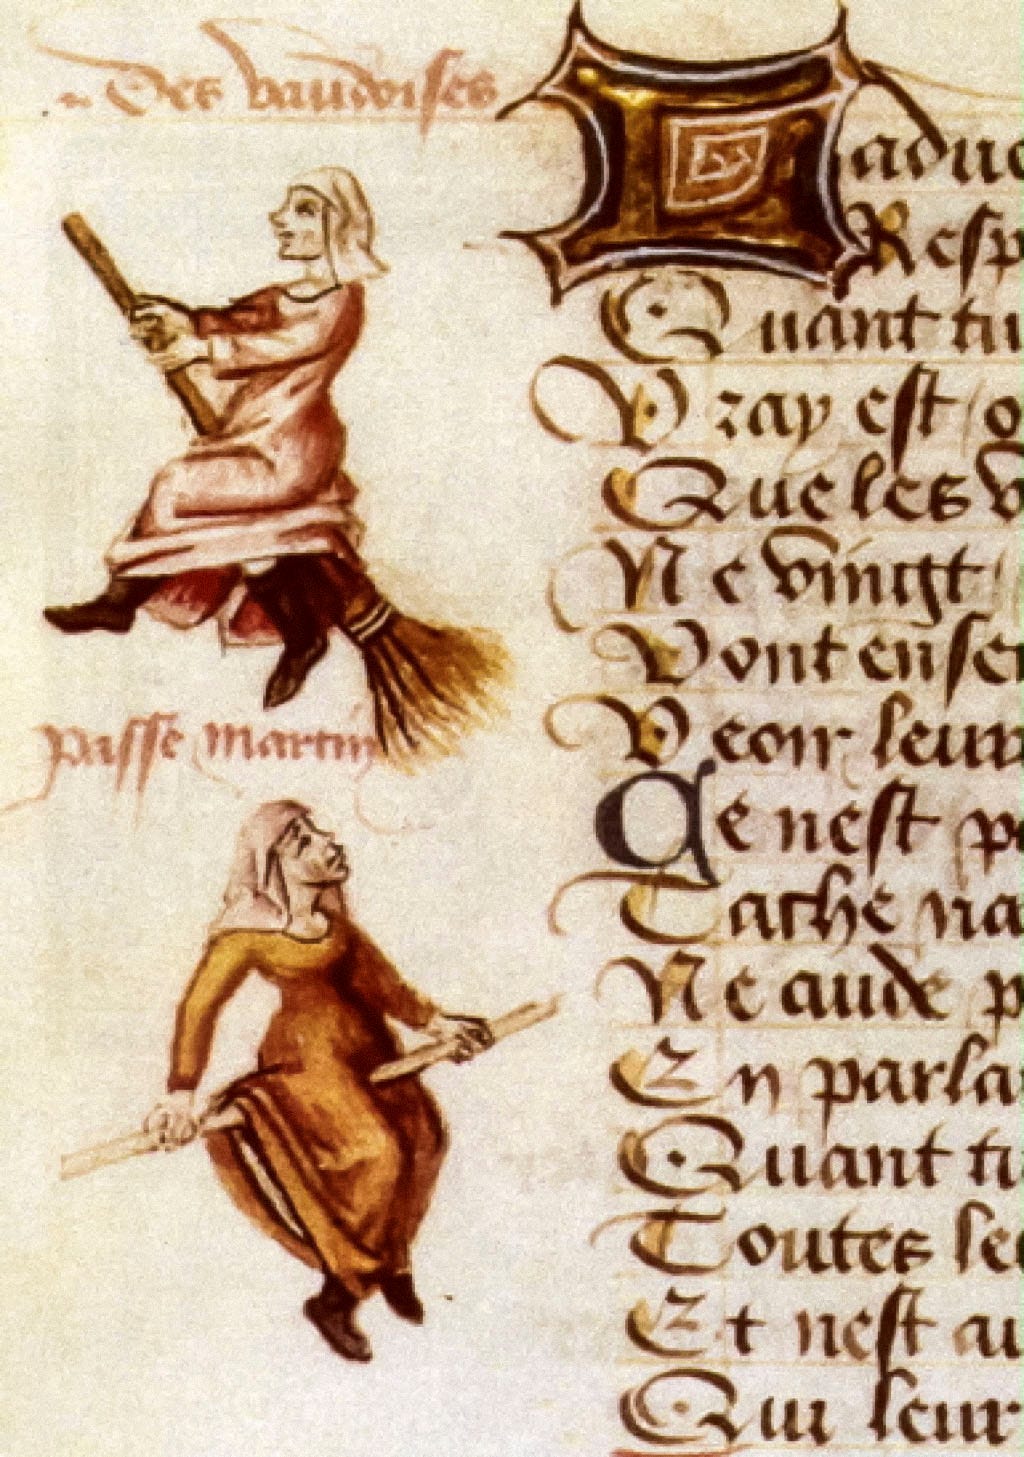 Des vaudoises
passe martin
Laduc
Resp
Quant tu
Vray est
Que les v
Ne vingt
Vont ense
Veoir leur
Ce nest p
Tache na
Ne aude p
En parla
Quant tu
Toutes le
Et nest au
Qui leur